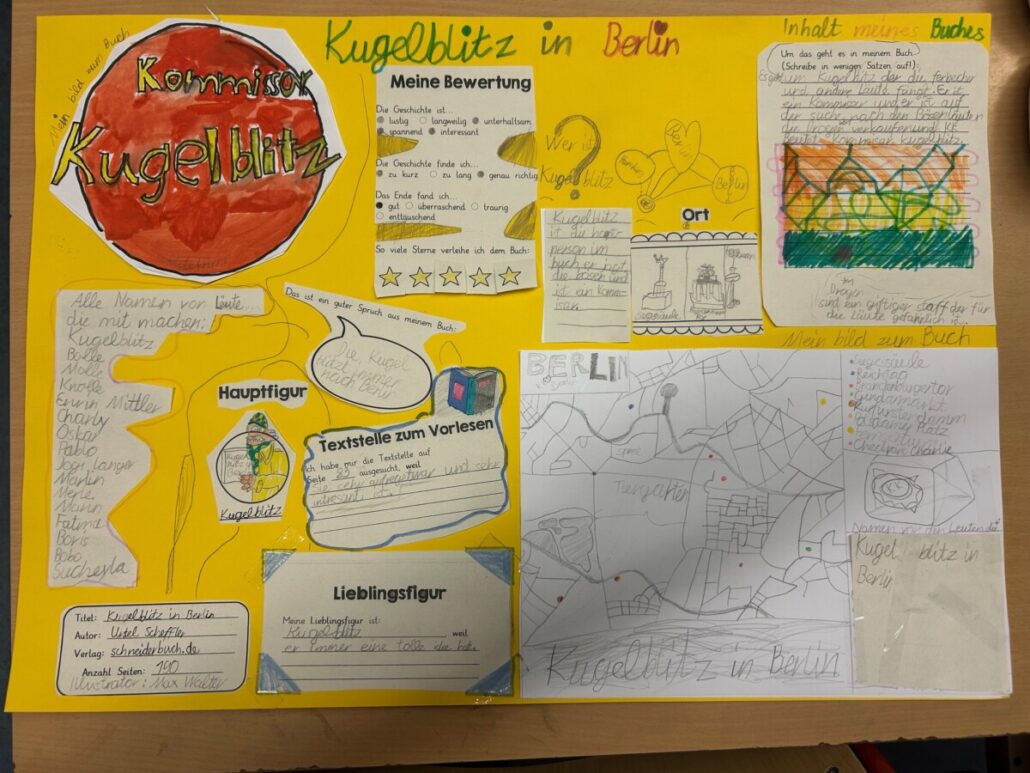 Kugelblitz in Berlin
Mein bild zum Buch
Kommissor
Kugelblitz
Meine Bewertung
Die Geschichte ist...
lustig langweilig unterhaltsam
spannend interessant
Die Geschichte finde ich...
zu kurz zu lang genau richtig
Das Ende fand ich...
gut überraschend traurig
enttäuschend
So viele Sterne verleihe ich dem Buch:
Wer ist
Kugelblitz
?
Berlin
Berlin
Kugelblitz
ist die
person im
buch er
die bösen und
ist ein
Ort
Siegessäule
Inhalt meines Buches
Um das geht es in meinem Buch:
(Schreibe in wenigen Sätzen auf!)
Es geht
um Kugelblitz der die
und andere Leute fängt. Er ist
ein und er ist auf
der suche nach den
die Drogen verkaufen und KK
Kugelblitz
Drogen
sind ein giftiger stoff der für
die Läute gefährlich
Alle Namen von Leute
die mit machen:
Kugelblitz
Bolle
Molle
Knolle
Erwin Mittler
Charly
Oskar
Pablo
Jogi Langer
Martin
Merle
Marin
Fatma
Boris
Bobo
Das ist ein guter Spruch aus meinem Buch:
Die Kugel
blitzt immer
nach
Hauptfigur
Kugelblitz
Textstelle zum Vorlesen
Ich habe mir die Textstelle auf
Seite ausgesucht, weil
sie sehr aufregetwar und sehr
intresant ist.
Lieblingsfigur
Meine Lieblingsfigur ist:
Kugelblitz weil
er immer eine tolle idee hat.
Titel: Kugelblitz in Berlin
Autor: Ursel Scheffler
Verlag: schneiderbuch.de
Anzahl Seiten: 190
Illustrator: Max Walter
Mein bild zum Buch
BERLIN
Spree
Tiergarten
Kugelblitz in Berlin
Siegessäule
Reichtag
Brandenburgertor
Gendarmarkt
Kurfürstendamm
Potsdamer Platz
Checkpoint Charlie
KK
Kugel blitz in
Berlin